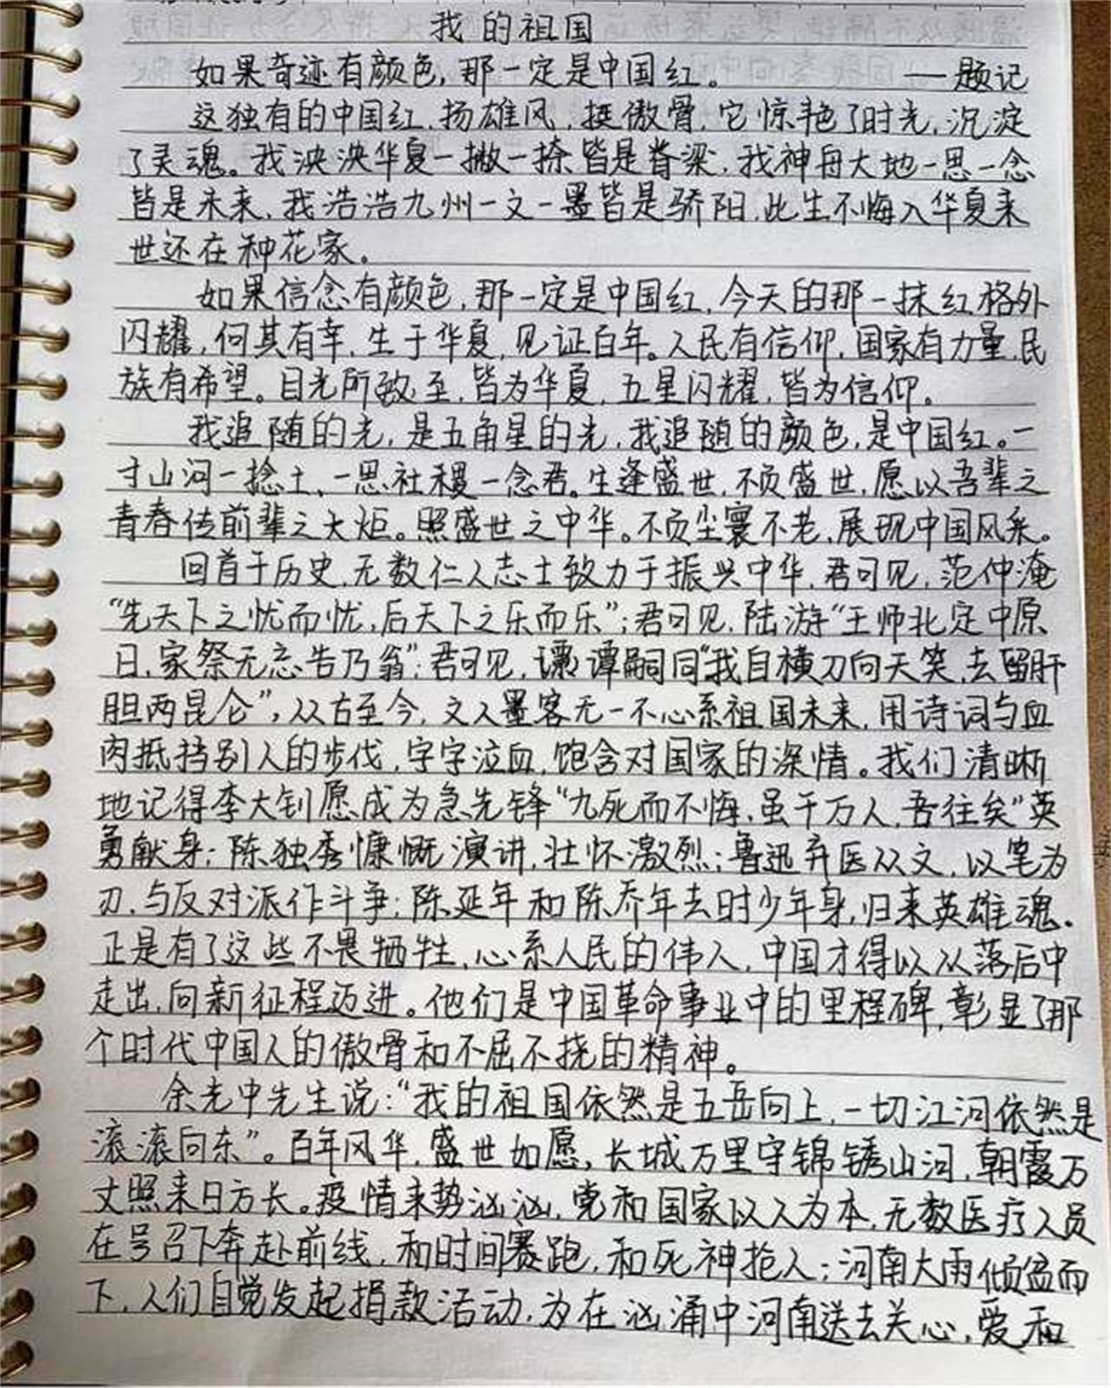 我的祖国
如果奇迹有颜色,那一定是中国红。 ——题记
这独有的中国红,扬雄风,挺傲骨,它惊艳了时光,沉淀
了灵魂。我泱泱华夏一撇一捺皆是脊梁,我神舟大地一思一念
皆是未来,我浩浩九州一文一墨皆是骄阳,此生不悔入华夏来
世还在种花家。
如果信念有颜色,那一定是中国红,今天的那一抹红格外
闪耀,何其有幸,生于华夏,见证百年。人民有信仰,国家有力量,民
族有希望。目光所致至,皆为华夏,五星闪耀,皆为信仰。
我追随的光,是五角星的光,我追随的颜色,是中国红。一
寸山河一捻土、一思社稷一念君。生逢盛世,不负盛世,愿以吾辈之
青春传前辈之大炬。照盛世之中华。不负尘寰不老,展现中国风采。
回首于历史,无数仁人志士致力于振兴中华,君可见,范仲淹
“先天下之忧而忧,后天下之乐而乐”;君可见,陆游“王师北定中原
日,家祭无忘告乃翁”;君可见,谭嗣同“我自横刀向天笑,去留肝
胆两昆仑”,从古至今,文人墨客无一不心系祖国未来,用诗词与血
肉抵挡别人的步伐,字字泣血,饱含对国家的深情。我们清晰
地记得李大钊愿成为急先锋“九死而不悔,虽千万人,吾往矣”英
勇献身;陈独秀慷慨演讲,壮怀激烈;鲁迅弃医从文,以笔为
刃,与反对派作斗争;陈延年和陈乔年去时少年身,归来英雄魂。
正是有了这些不畏牺牲,心系人民的伟人,中国才得以从落后中
走出,向新征程迈进。他们是中国革命事业中的里程碑,彰显了那
个时代中国人的傲骨和不屈不挠的精神。
余光中先生说:“我的祖国依然是五岳向上,一切江河依然是
滚滚向东”。百年风华,盛世如愿,长城万里守锦锈山河,朝霞万
丈照来日方长。疫情来势汹汹,党和国家以人为本,无数医疗人员
在号召下奔赴前线,和时间赛跑,和死神抢人;河南大雨倾盆而
下,人们自觉发起捐款活动,为在汹涌中河南送去关心,爱和